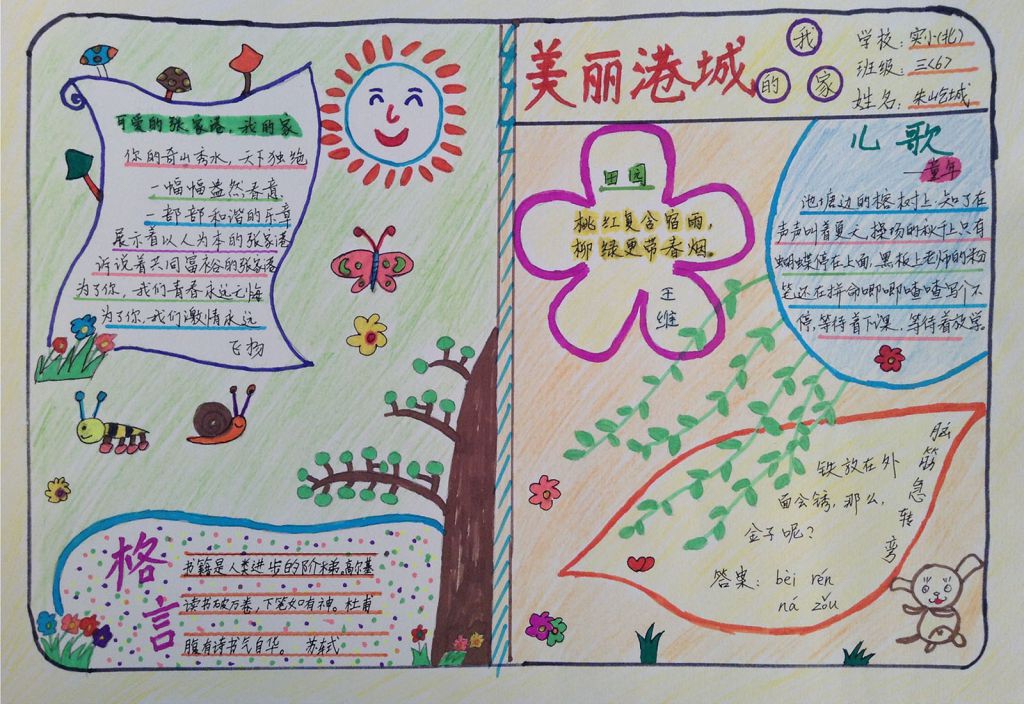 美丽港城
我的家
学校：实小(北)
班级：三<6>
姓名：朱屹城
可爱的张家港，我的家
你的奇山秀水，天下独绝
一幅幅盎然春意
一部部和谐的乐章
展示着以人为本的张家港
诉说着共同富裕的张家港
为了你，我们青春永远无悔
为了你，我们激情永远
飞扬
格言
书籍是人类进步的阶梯。高尔基
读书破万卷，下笔如有神。杜甫
腹有诗书气自华。 苏轼
田园
桃红复含宿雨，
柳绿更带春烟。
王维
儿歌
——童年
池塘边的榕树上，知了在
声声叫着夏天，操场的秋千上只有
蝴蝶停在上面，黑板上老师的粉
笔还在拼命唧唧喳喳写个不
停，等待着下课，等待着放学。
脑筋急转弯
铁放在外
面会锈，那么，
金子呢？
答案：bèi rén
ná zǒu